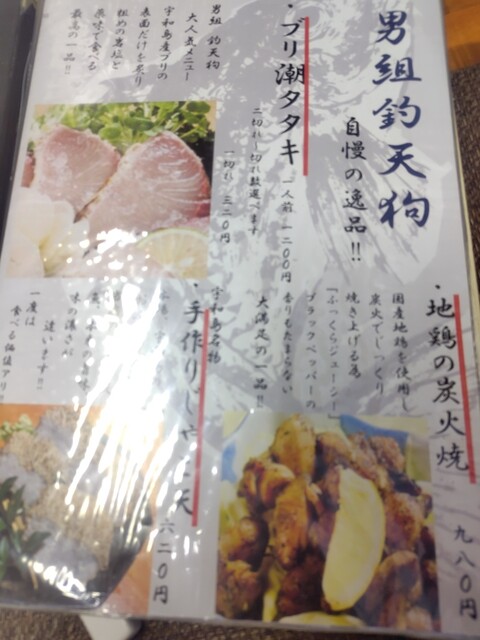 男組釣天狗
自慢の逸品!!
・ブリ潮タタキ
一人前 一二〇〇円
二切れ〜切れ数選べます
一切れ 三二〇円
男組 釣天狗
大人気メニュー
宇和島産ブリの
表面だけを炙り
粗めの岩塩と
薬味で食べる
最高の一品!!
・地鶏の炭火焼
九八〇円
国産地鶏を使用し
炭火でじっくり
焼き上げる為
「ふっくらジューシー」
ブラックペッパーの
香りもたまらない
大満足の一品!!
宇和島名物
・手作りじゃこ天
六二〇円
味の濃さが
違います!!
一度は
食べる価値アリ!!